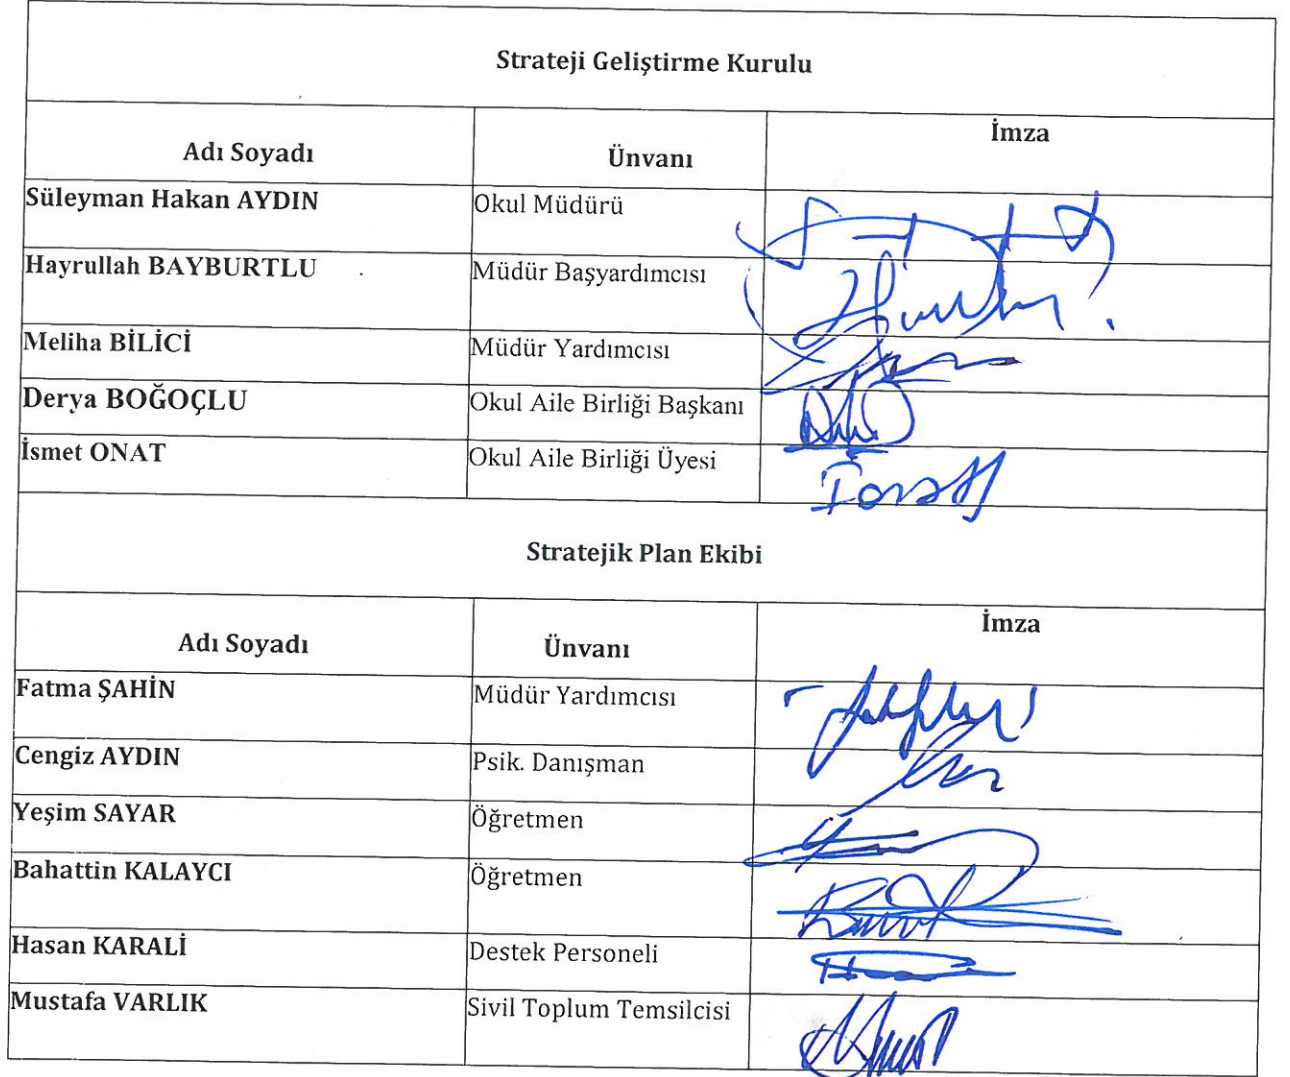 Strateji Geliştirme Kurulu
Adı Soyadı Ünvanı İmza
Süleyman Hakan AYDIN Okul Müdürü
Hayrullah BAYBURTLU Müdür Başyardımcısı
Meliha BİLİCİ Müdür Yardımcısı
Derya BOĞOÇLU Okul Aile Birliği Başkanı
İsmet ONAT Okul Aile Birliği Üyesi
Stratejik Plan Ekibi
Adı Soyadı Ünvanı İmza
Fatma ŞAHİN Müdür Yardımcısı
Cengiz AYDIN Psik. Danışman
Yeşim SAYAR Öğretmen
Bahattin KALAYCI Öğretmen
Hasan KARALİ Destek Personeli
Mustafa VARLIK Sivil Toplum Temsilcisi